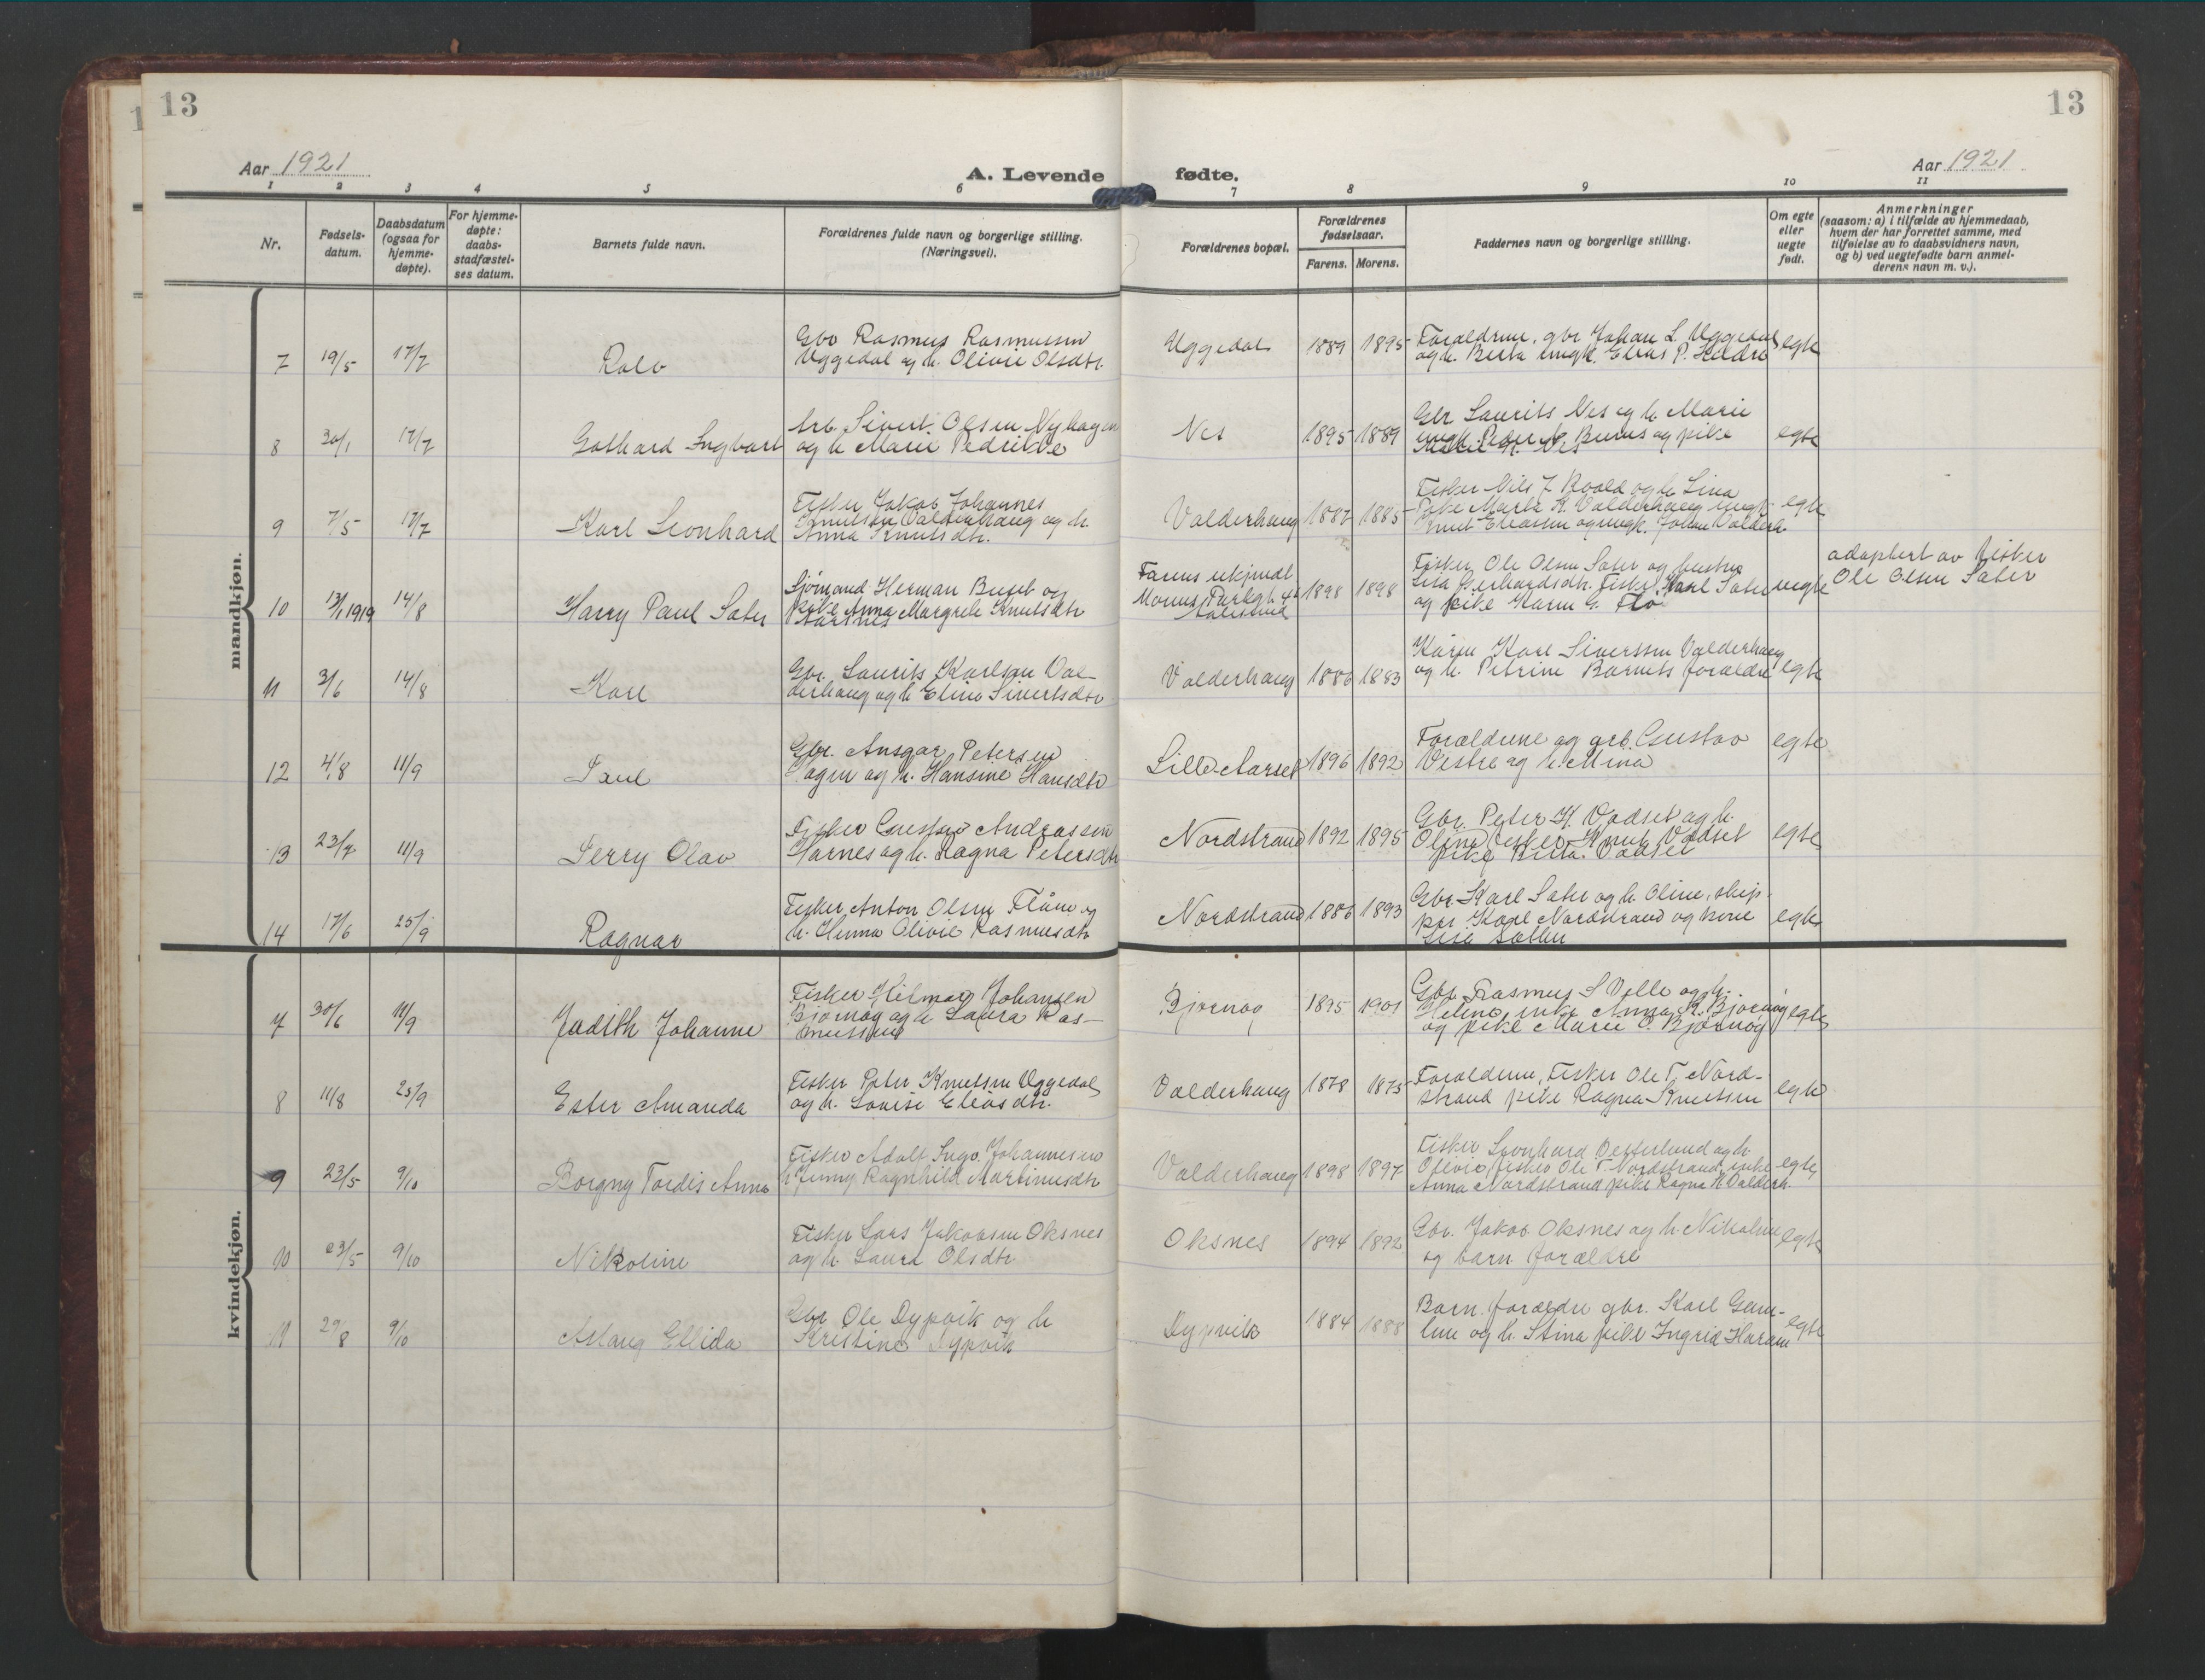 13
13
Aar 1921
A. Levende fødte.
Aar 1921
1 2 3 4 5 6 7 8 9 10 11
Nr.
Fødsels-
datum.
Daabsdatum
(ogsaa for
hjemme-
døpte).
For hjemme-
døpte:
daabs-
stadfæstel-
ses datum.
Barnets fulde navn.
Forældrenes fulde navn og borgerlige stilling.
(Næringsvei).
Forældrenes bopæl.
Forældrenes
fødselsaar.
Farens. Morens.
Faddernes navn og borgerlige stilling.
Om egte
eller
uegte
født.
Anmerkninger
(saasom: a) i tilfælde av hjemmedaab,
hvem der har forrettet samme, med
tilføielse av to daabsvidners navn,
og b) ved uegtefødte barn anmel-
derens navn m. v.).
mandkjøn.
7 19/5 17/7 Rolv
Gbr Rasmus Rasmussen
Uggedal og h. Olivie Olsdtr.
Uggedal 1889 1895
Forældrene, gbr Johan L. Uggedal
og h. Berta ungk. Elias P. Hildre
egte
8 30/1 17/7 Gothard Ingvart
Arb. Sivert Olsen Nyhagen
og h Marie
Nes 1895 1889
Gbr Laurits Nes og h. Marie
ungk. Peder og pike
Nes
egte
9 7/5 17/7 Karl Leonhard
Fisker Jakob Johannes
Knutsen Valderhaug og h.
Anna Knutsdtr.
Valderhaug 1882 1885
Fisker Nils J Roald og h. Lina
Pike Marta K. Valderhaug ungk
Knut Eliassen og ungk. Johan Valderh.
egte
10 13/1 1919 14/8 Harry Paul Sater
Sjømand Herman Buset og
pike Anna Margrete Knutsdtr
Aarsnes
Farens ukjendt
Morens 4b
Aalesund
1898 1898
Fisker Ole Olsen Sater og hustru
Lisa Gerhardsdtr. Fisker Karl Sater
og pike Karen G. Flø
uegte
adoptert av fisker
Ole Olsen Sater
11 3/6 14/8 Karl
Gbr. Laurits Karlsen Val-
derhaug og h Elina Sivertsdtr
Valderhaug 1886 1883
Kårm Karl Siverssen Valderhaug
og h. Petrine Barnets forældre
egte
12 4/8 11/9 Paul
Gbr. Ansgar Petersen
Hagen og h. Hansine Hansdtr
Lille-Aarset 1896 1892
Forældrene og arb. Gustav
Vestre og h. Mina
egte
13 23/7 11/9 Perry Olav
Fisker Gustav Andreassen
Harnes og h. Ragna Petersdtr
Nordstrand 1892 1895
Gbr. Peter H. Vadset og h.
Olina fisker Knut Vadset
pike Berta Vadset
egte
14 17/6 25/9 Ragnar
Fisker Anton Olsen Flåem og
h. Hanna Olivie Rasmusdtr
Nordstrand 1886 1893
Gbr. Karl Sater og h. Oline, skip-
per Karl Nordstrand og kone
Lisa
egte
kvindekjøn.
7 30/6 11/9 Judith Johanne
Fisker Hilmar Johansen
Bjørnøy og h. Laura Ras-
mussen
Bjørnøy 1895 1901
Gbr. Rasmus S Velle og h.
Helena, enke Anna K. Bjørnøy
og pike Marie O. Bjørnøy
egte
8 11/8 25/9 Ester Amanda
Fisker Peter Knutsen Uggedal
og h. Lovise Eliasdtr.
Valderhaug 1878 1875
Forældrene, Fisker Ole T. Nord-
strand pike Ragna Knutsen
egte
9 23/5 9/10 Borgny Tordis Anna
Fisker Adolf Ingv. Johannesen
h Jenny Ragnhild Martinusdtr
Valderhaug 1898 1897
Fisker Leonhard Oesterlund og h
Olivie, fisker Ole T. Nordstrand, enke
Anna Nordstrand pike Ragna K Valderh.
egte
10 23/5 9/10 Nikoline
Fisker Lars Jakobsen Oksnes
og h. Laura Olsdtr
Oksnes 1894 1892
Gbr. Jakob Oksnes og h. Nikoline
og barn. forældre
egte
11 29/8 9/10 Aslaug Ellida
Gbr Ole Dypvik og h
Kristine Dypvik
Dypvik 1884 1888
Barn. forældre gbr. Karl Gam-
lem og h. Stina pike Ingrid Haram
egte